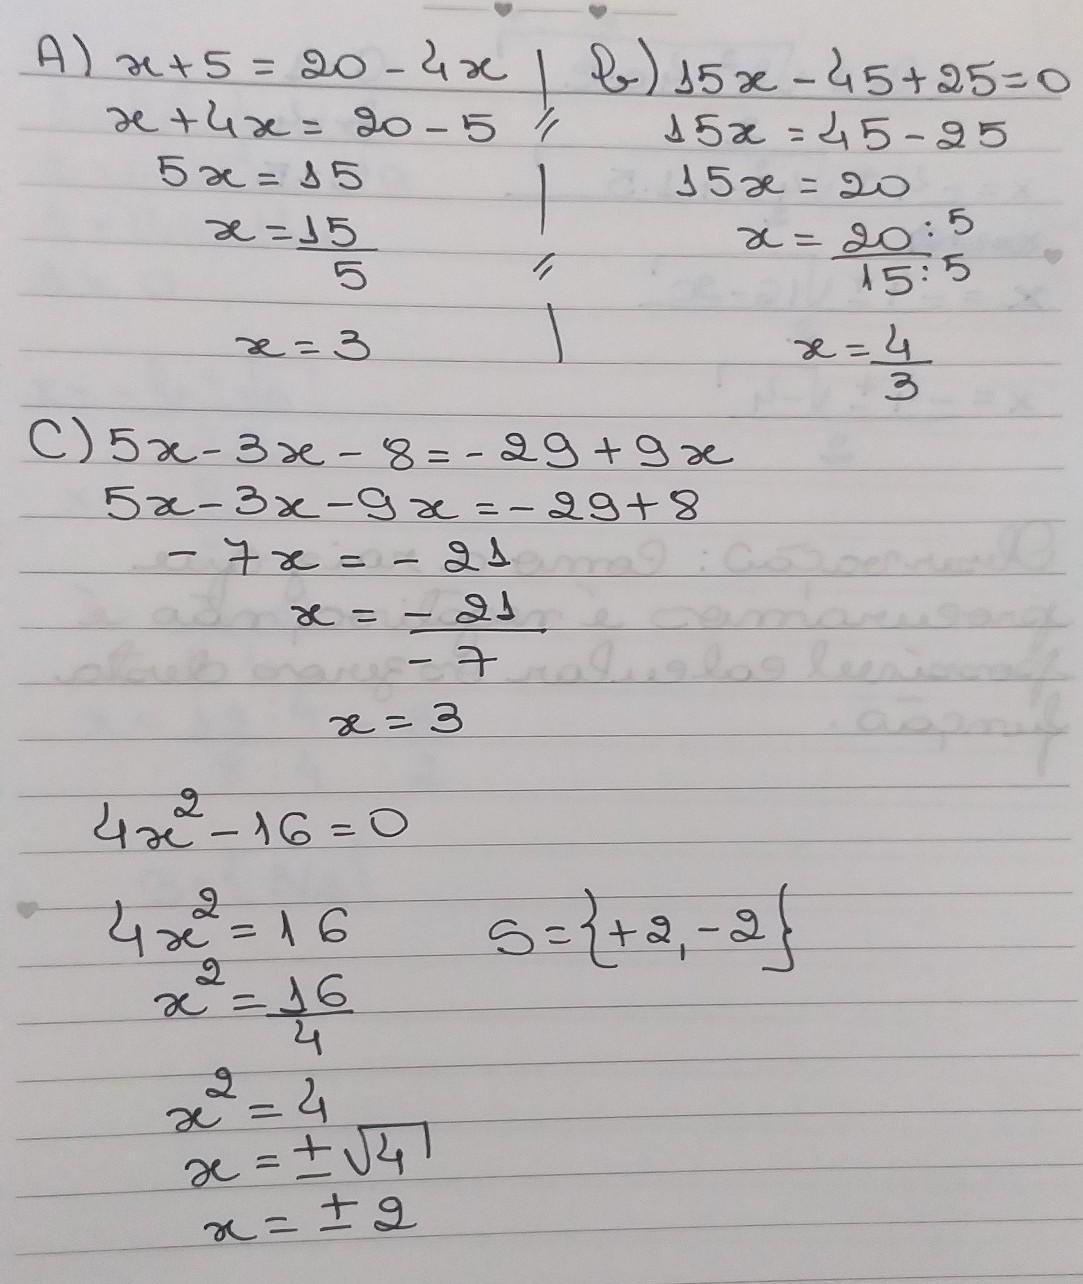 A) x + 5 = 20 - 4x
x + 4x = 20 - 5
5x = 15
x = 15/5
x = 3
b) 15x - 45 + 25 = 0
15x = 45 - 25
15x = 20
x = 20:5/15:5
x = 4/3
C) 5x - 3x - 8 = - 29 + 9x
5x - 3x - 9x = - 29 + 8
- 7x = - 21
x = - 21/- 7
x = 3
4x² - 16 = 0
4x² = 16
x² = 16/4
x² = 4
x = ± √4
x = ± 2
S = {+2, -2}